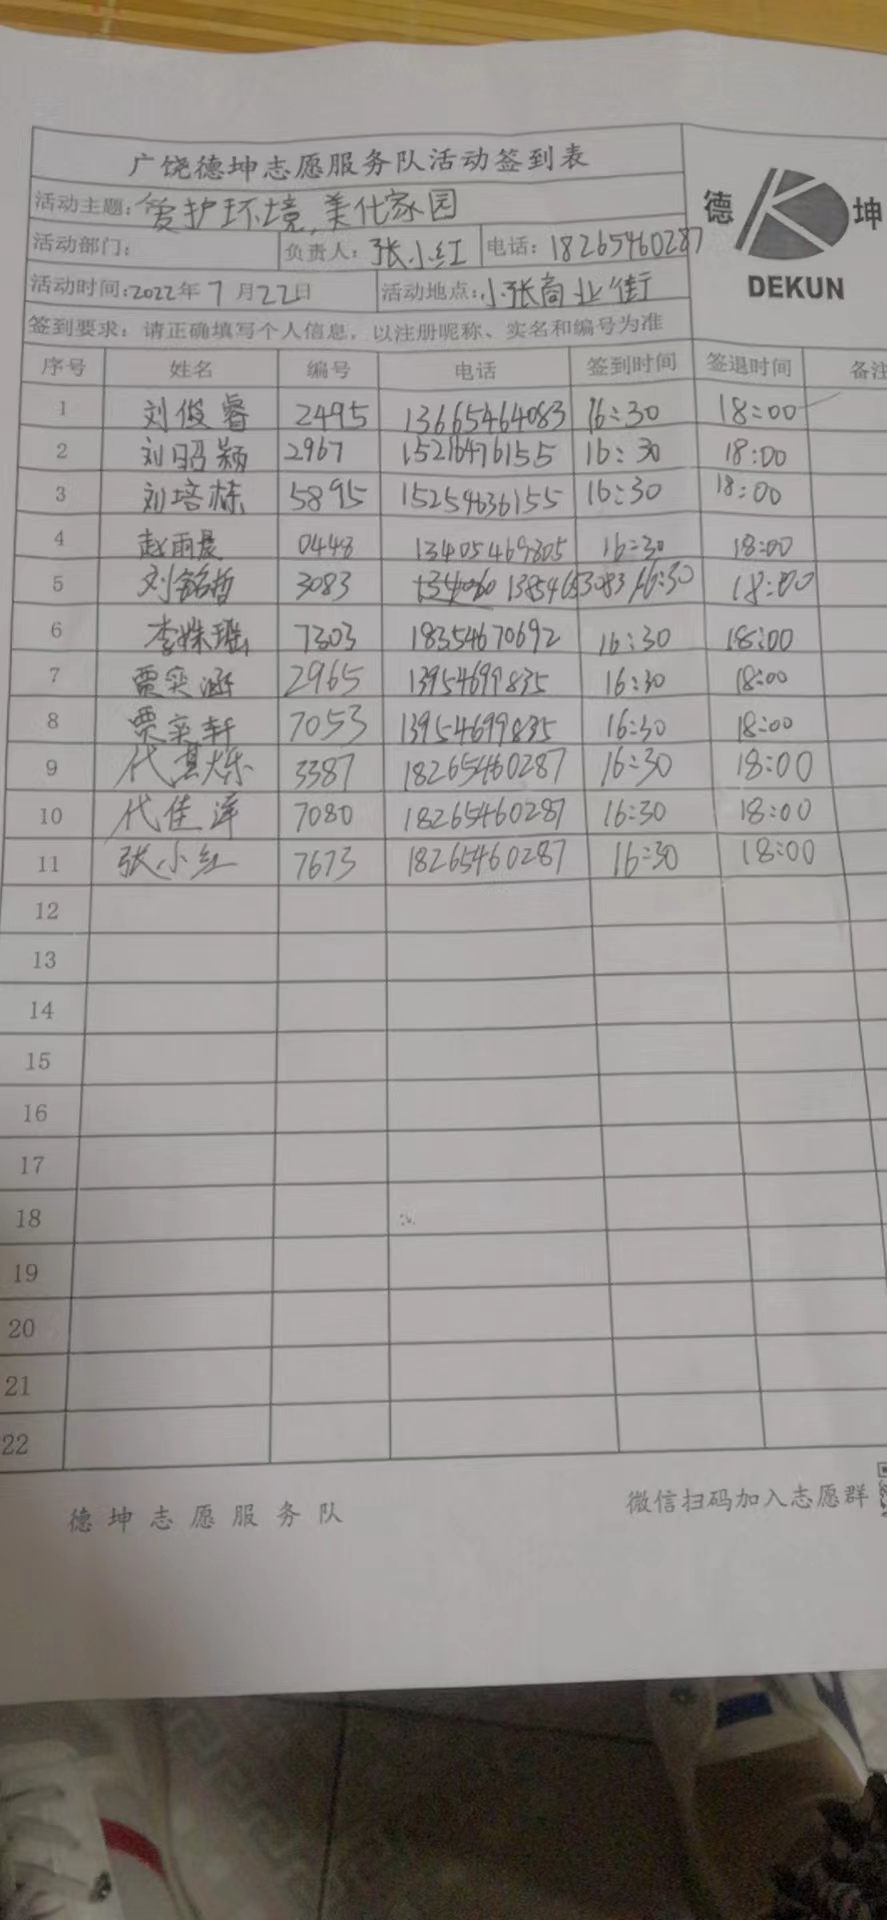 广饶德坤志愿服务队活动签到表
德 坤
DEKUN
活动主题: 爱护环境,美化家园
活动部门: 负责人: 张小红 电话: 18265460287
活动时间:2022年7月22日 活动地点: 小张商业街
签到要求: 请正确填写个人信息, 以注册昵称、实名和编号为准
序号 姓名 编号 电话 签到时间 签退时间 备注
1 刘俊睿 2495 13665464083 16:30 18:00
2 刘昭颖 2967 15216476155 16:30 18:00
3 刘培栋 5895 15254636155 16:30 18:00
4 赵雨晨 0448 13405469805 16:30 18:00
5 刘铭哲 3083 13854653083 16:30 18:00
6 李姝瑶 7303 18354670692 16:30 18:00
7 贾奕涵 2965 13954699835 16:30 18:00
8 贾奕轩 7053 13954699835 16:30 18:00
9 代其烁 3387 18265460287 16:30 18:00
10 代佳泽 7080 18265460287 16:30 18:00
11 张小红 7673 18265460287 16:30 18:00
12
13
14
15
16
17
18
19
20
21
22
德坤志愿服务队 微信扫码加入志愿群